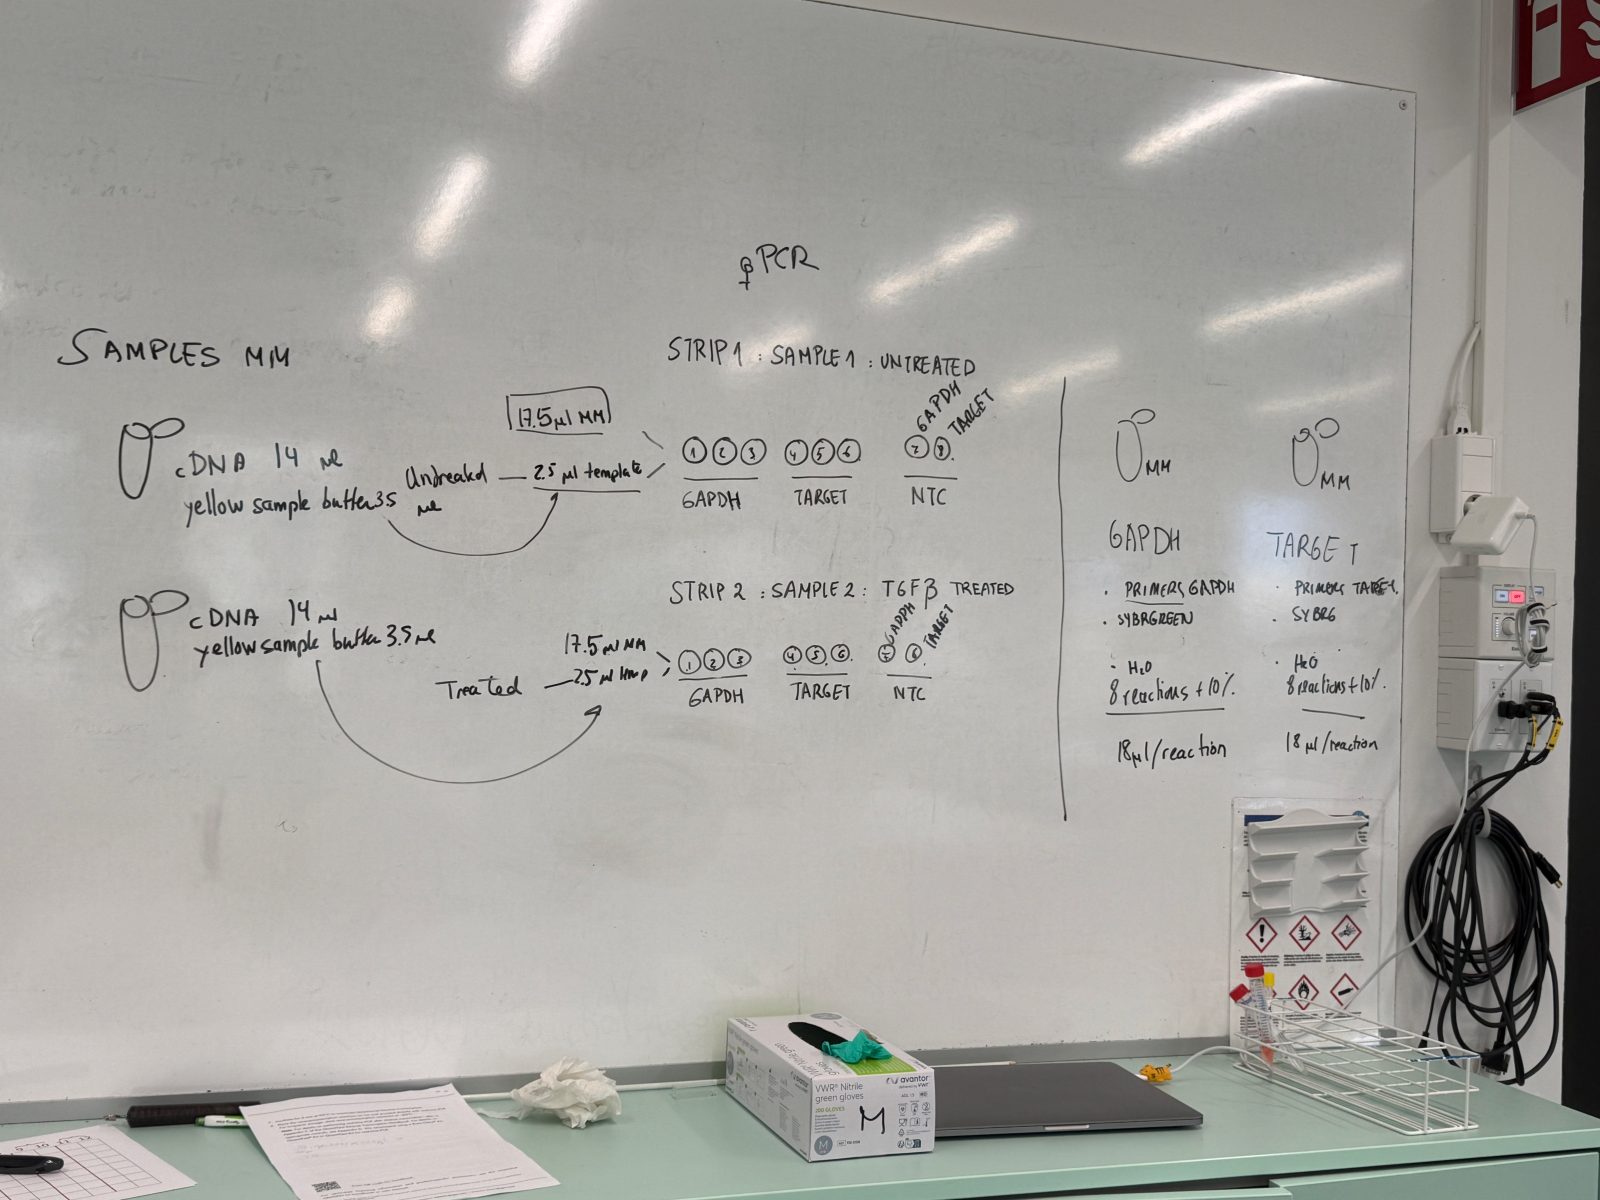 qPCR
SAMPLES MM
cDNA 14 µl
yellow sample buffer 3.5 µl
Untreated — 2.5 µl template
17.5 µl MM
cDNA 14 µl
yellow sample buffer 3.5 µl
Treated — 2.5 µl
17.5 µl MM
STRIP 1 : SAMPLE 1 : UNTREATED
GAPDH
TARGET
1 2 3 4 5 6 7 8
GAPDH TARGET NTC
STRIP 2 : SAMPLE 2 : TGFβ TREATED
GAPDH
TARGET
1 2 3 4 5 6
GAPDH TARGET NTC
MM
GAPDH
. PRIMERS GAPDH
. SYBRGREEN
. H2O
8 reactions + 10%.
18 µl/reaction
MM
TARGET
. PRIMERS TARGET.
. SYBRG
. H2O
8 reactions + 10%.
18 µl/reaction
VWR® Nitrile
green gloves
200 GLOVES
avantor
M
M